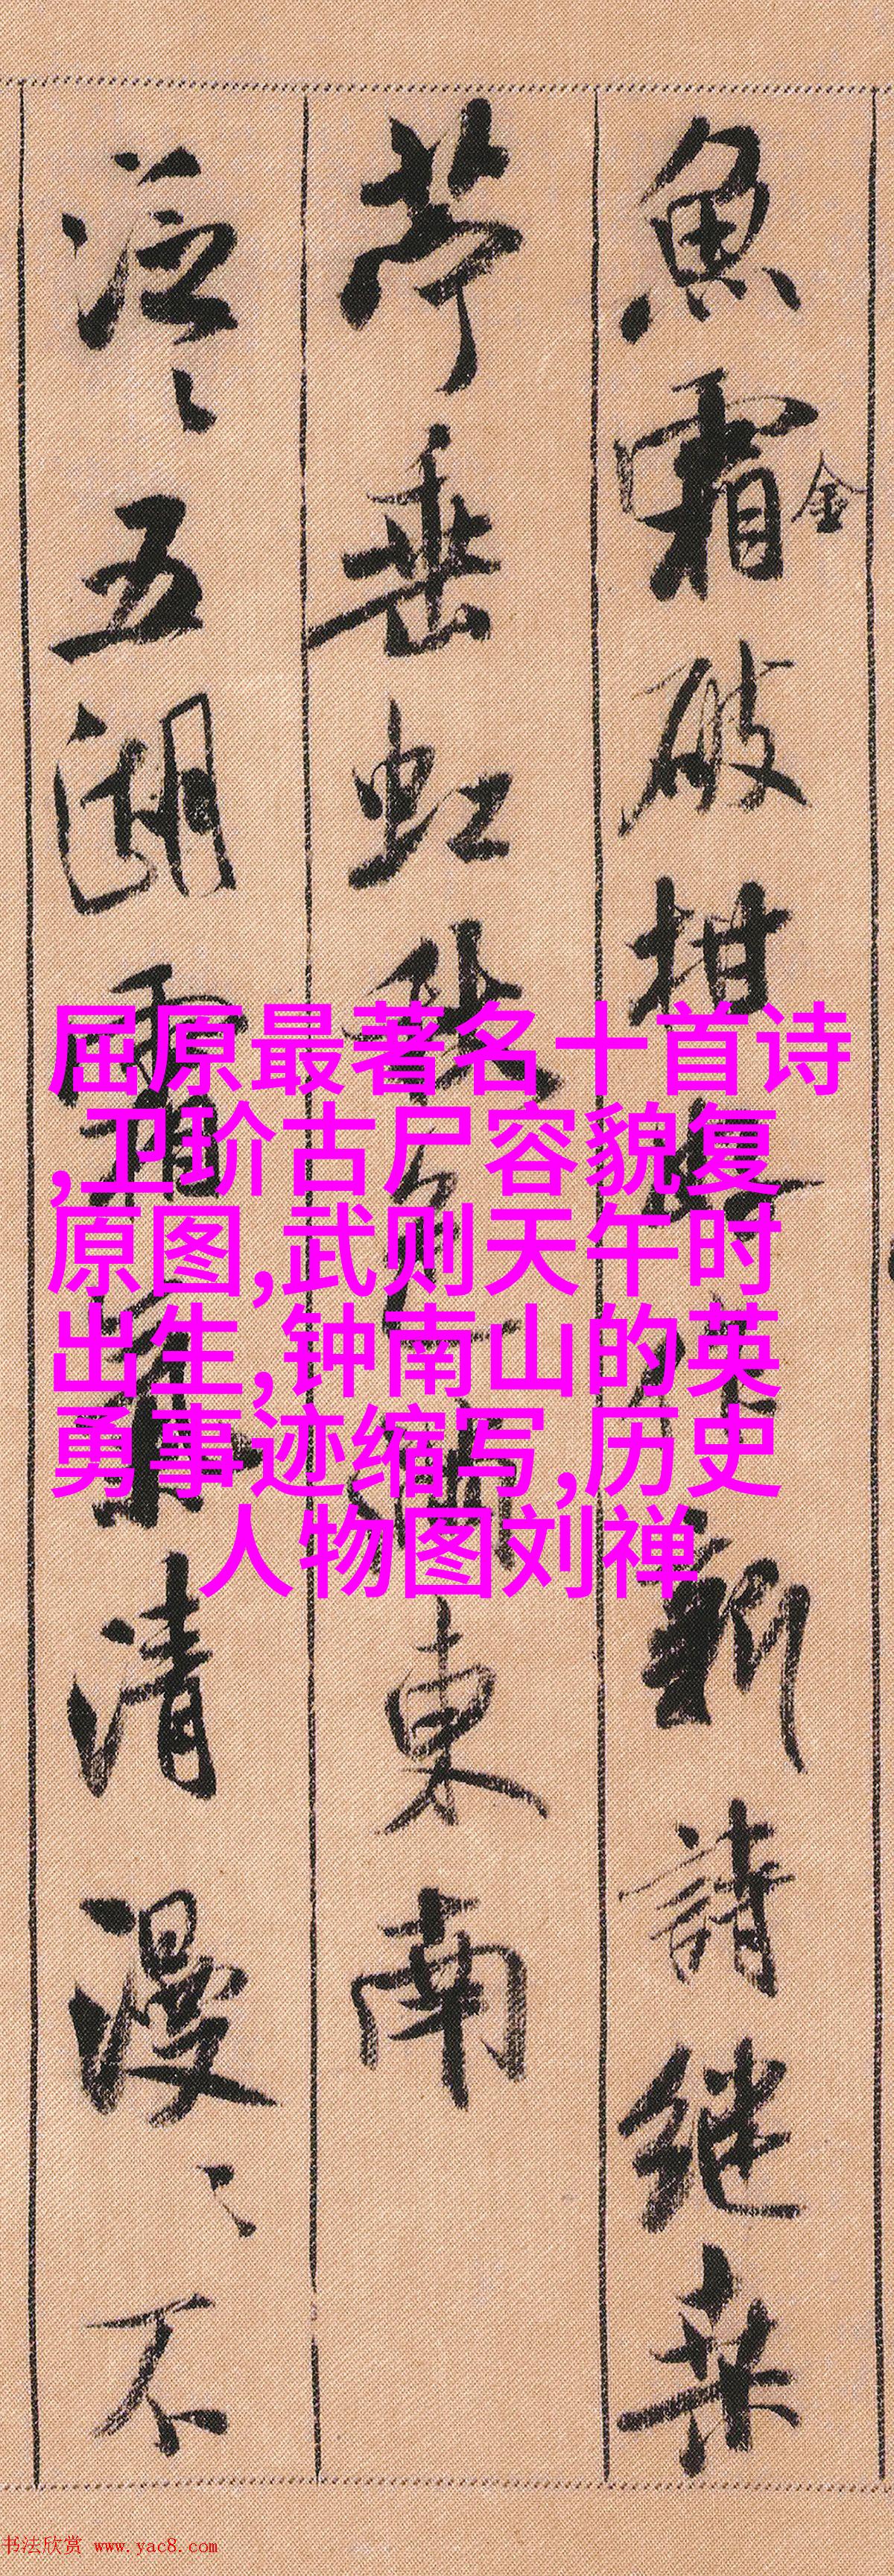 魚霜破柑好作新詩継桒
金
苧垂虹秋色滿東南
泛〻五湖霜氣清漫〻不
屈原最著名十首诗
,卫玠古尸容貌复
原图,武则天午时
出生,钟南山的英
勇事迹缩写,历史
人物图刘禅
书法欣赏 www.yac8.com